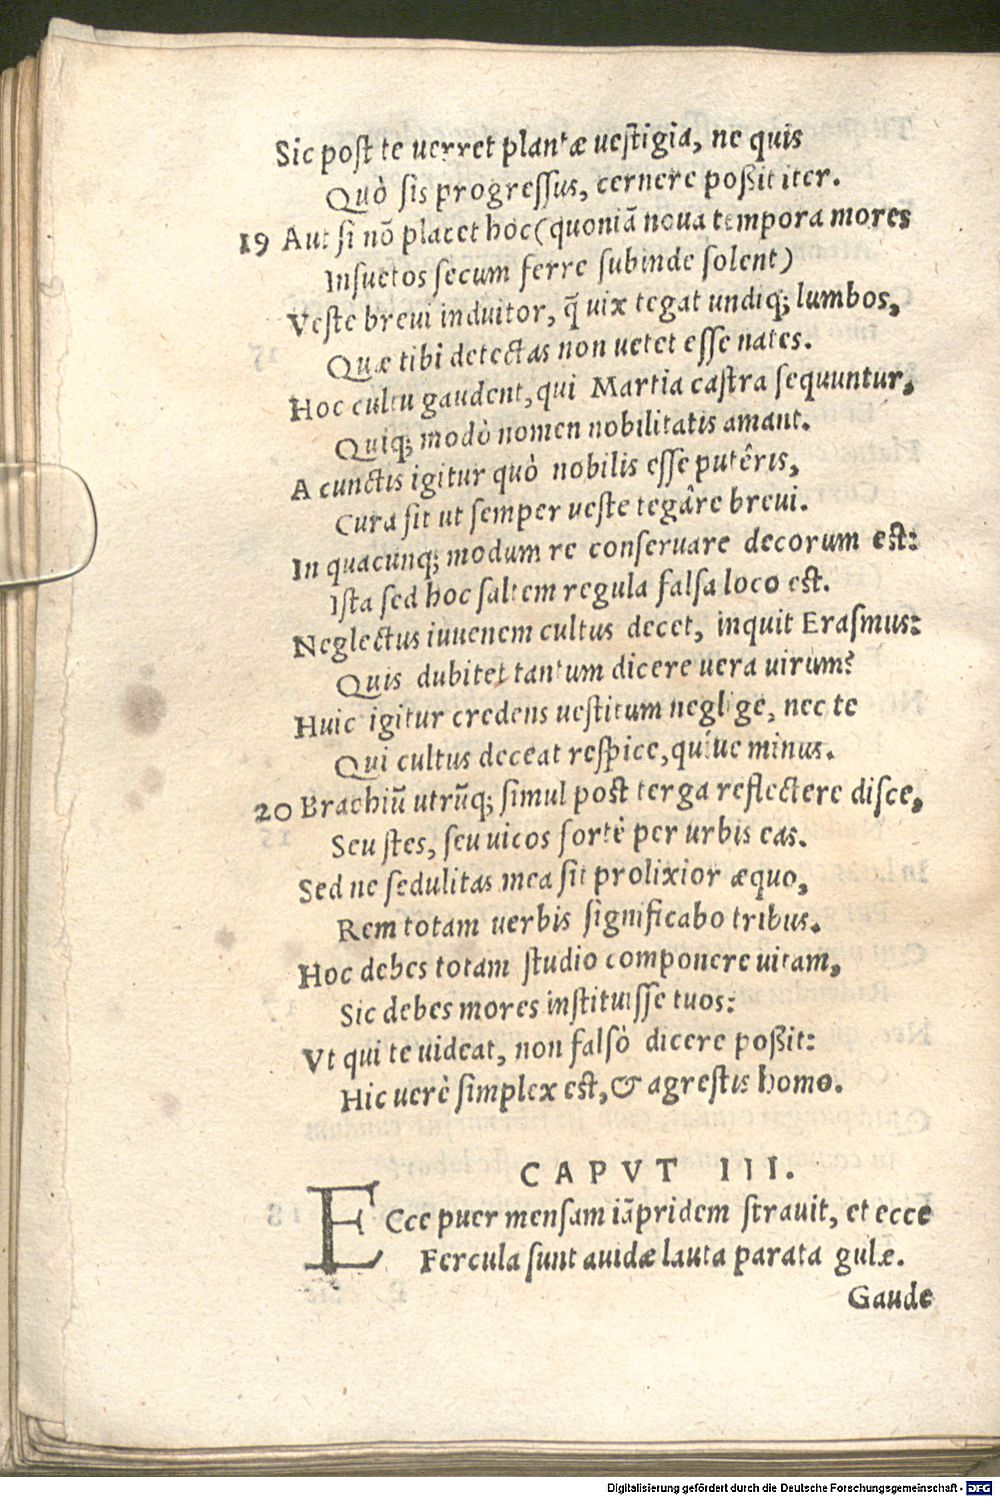 Sic post te uerret plantæ uestigia, ne quis
Quò sis progressus, cernere poßit iter.
19 Aut si nõ placet hoc (quoniã noua tempora mores
Insuetos secum ferre subinde solent)
Veste breui induitor, q̃ uix tegat undiq; lumbos,
Quæ tibi detectas non uetet esse nates.
Hoc cultu gaudent, qui Martia castra sequuntur,
Quiq; modò nomen nobilitatis amant.
A cunctis igitur quò nobilis esse putêris,
Cura sit ut semper ueste tegâre breui.
In quacunq; modum re conseruare decorum est:
Ista sed hoc saltem regula falsa loco est.
Neglectus iuuenem cultus decet, inquit Erasmus:
Quis dubitet tantum dicere uera uirum?
Huic igitur credens uestitum neglige, nec te
Qui cultus deceat respice, quiue minus.
20 Brachiũ utrũq; simul post terga reflectere disce,
Seu stes, seu uicos fortè per urbis eas.
Sed ne sedulitas mea sit prolixior æquo,
Rem totam uerbis significabo tribus.
Hoc debes totam studio componere uitam,
Sic debes mores instituisse tuos:
Vt qui te uideat, non falsò dicere poßit:
Hic uerè simplex est, & agrestis homo.
CAPVT III.
ECce puer mensam iãpridem strauit, et ecce
Fercula sunt auidæ lauta parata gulæ.
Gaude
Digitalisierung gefördert durch die Deutsche Forschungsgemeinschaft - DFG